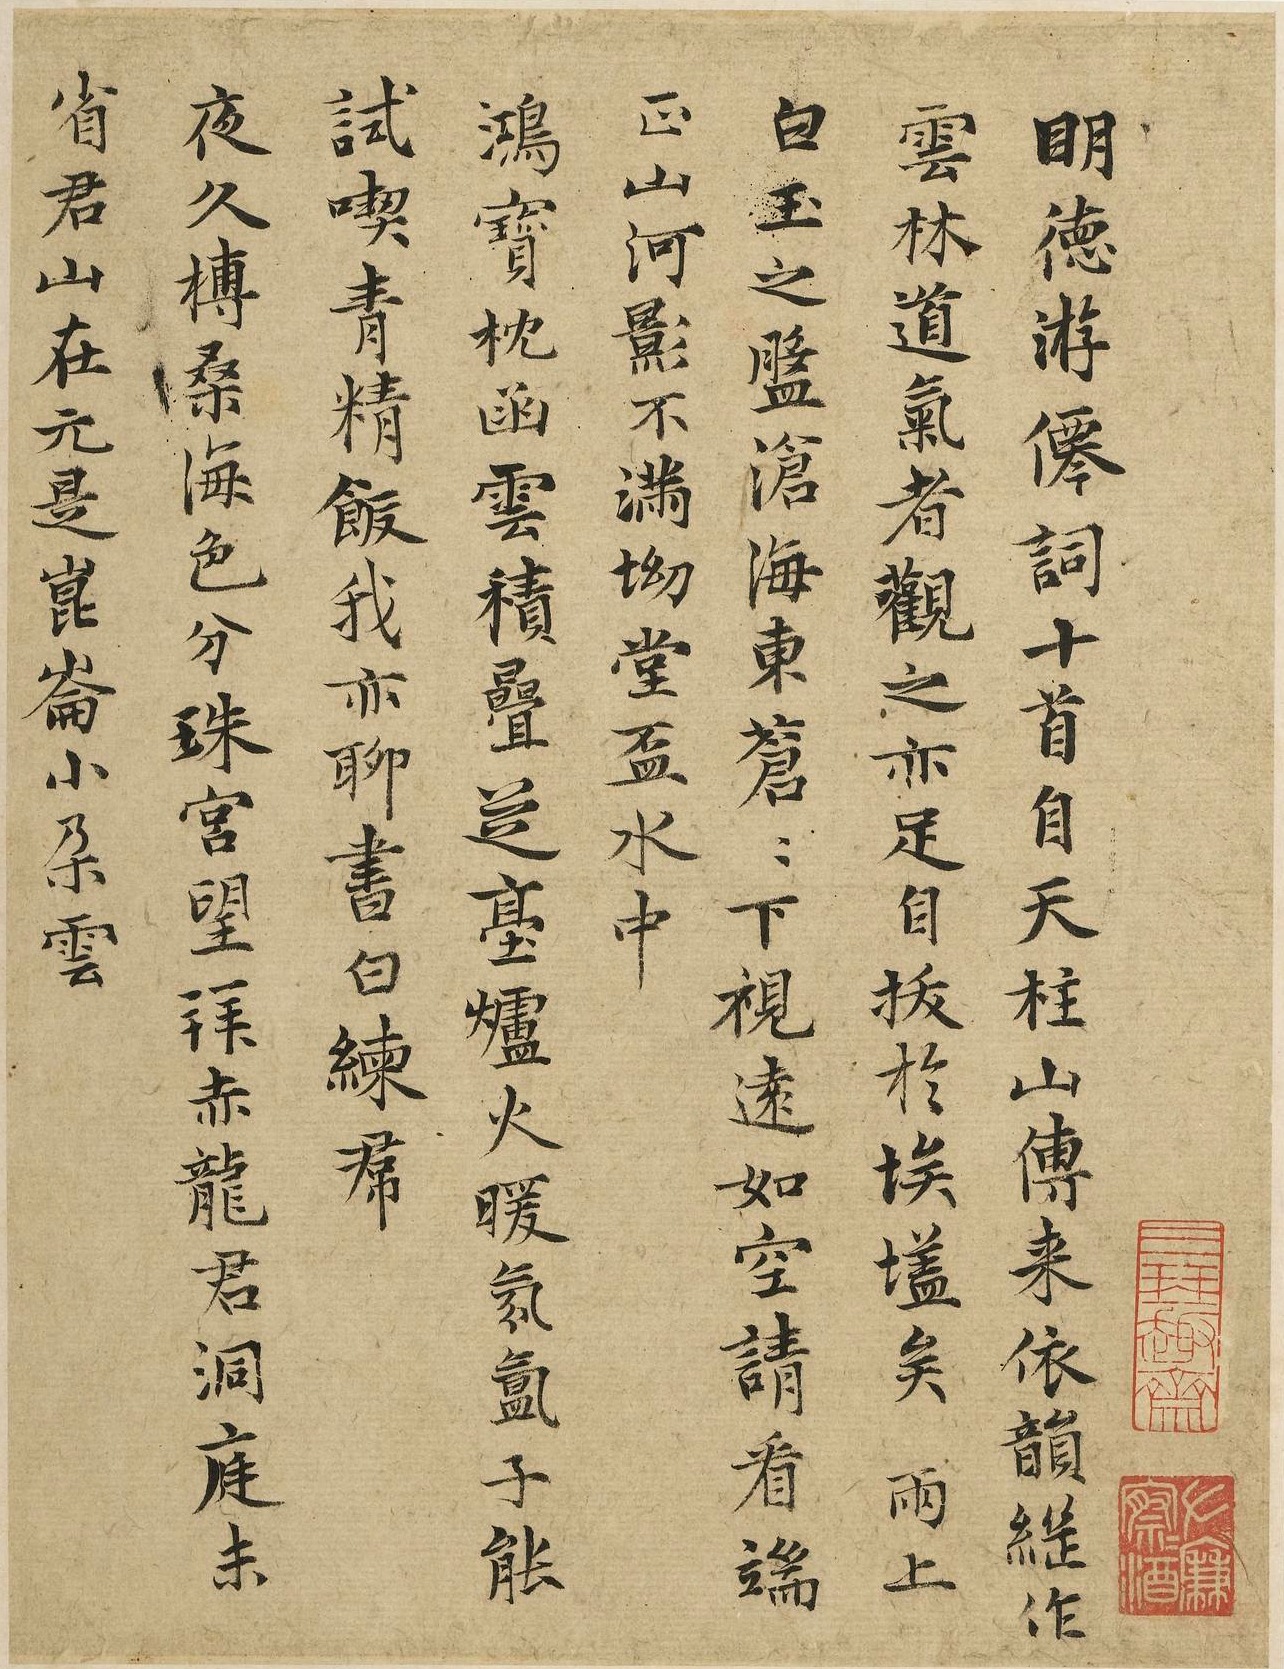 明德游僊詞十首自天柱山傳来依韻継作
雲林道氣者觀之亦足自拔於埃壒矣 兩上
白玉之盤滄海東蒼〻下視遠如空請看端
正山河影不滿坳堂盃水中
鴻寶枕函雲積疊芝臺爐火暖氛氳子能
試喫青精飯我亦聊書白練帬
夜久榑桑海色分珠宮望拜赤龍君洞庭未
省君山在元是崑崙小朶雲